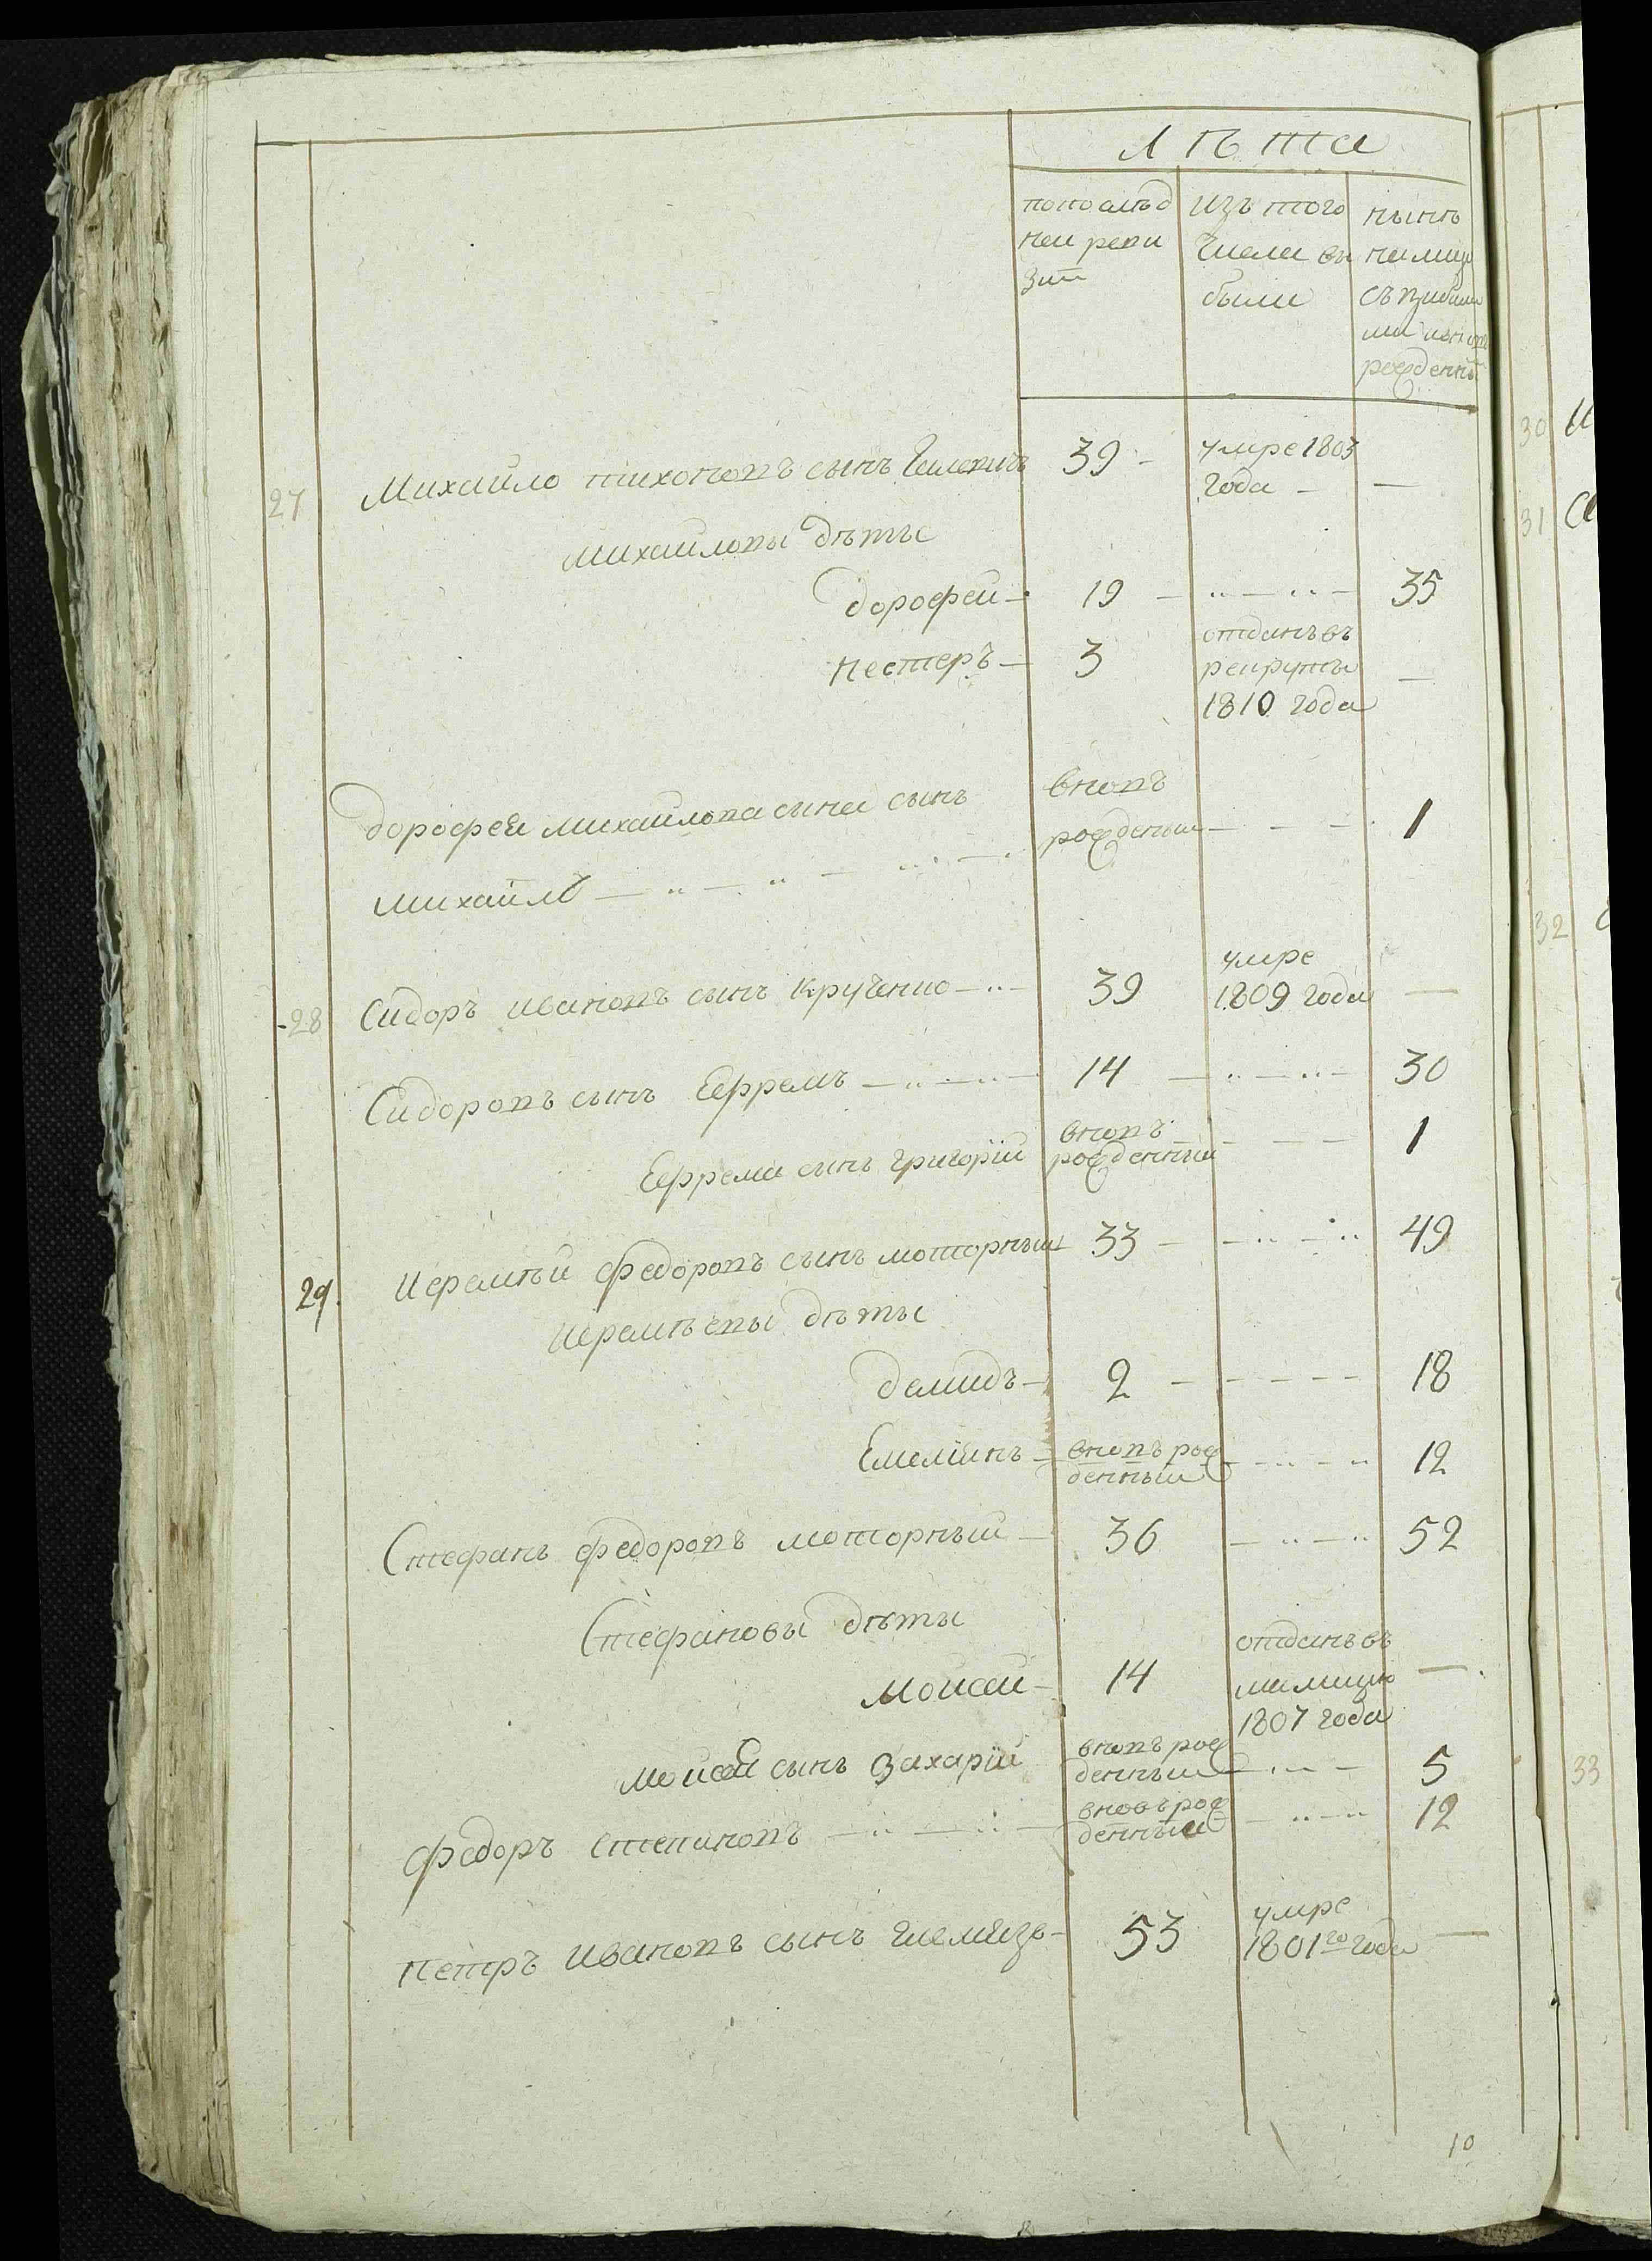 лѣта
попослѣд
ней реви
зіи
изъ того
числа вы
были
нынѣ
налицо
рожденны
27 Михайло тихоновъ сынъ 39 умре 1803
года —
михайловы дѣты
дорофей 19 35
нестеръ 3 отданъ въ
рекруты
1810 года
дорофея михайлова сына сынъ вновъ
рожденый 1
михайло
28 Сидоръ ивановъ сынъ крученко 39 умре
1809 года —
Сидоровъ сынъ Ефремъ 14 30
Ефрема сынъ григорій вновъ
рожденный 1
29. Иеремѣй федоровъ сынъ моторный 33 49
Иеремѣевы дѣты
демидъ 2 18
Емелянъ вновъ рож
денный 12
Стефанъ федоровъ моторный 36 52
Стефановы дѣты
моисей 14 отданъ въ
милицю
1807 года —
моисея сынъ захарій вновъ рож
денный 5
федоръ степановъ вновъ рож
денный 12
петръ ивановъ сынъ 53 умре
1801го года —
10
30
31
32
33